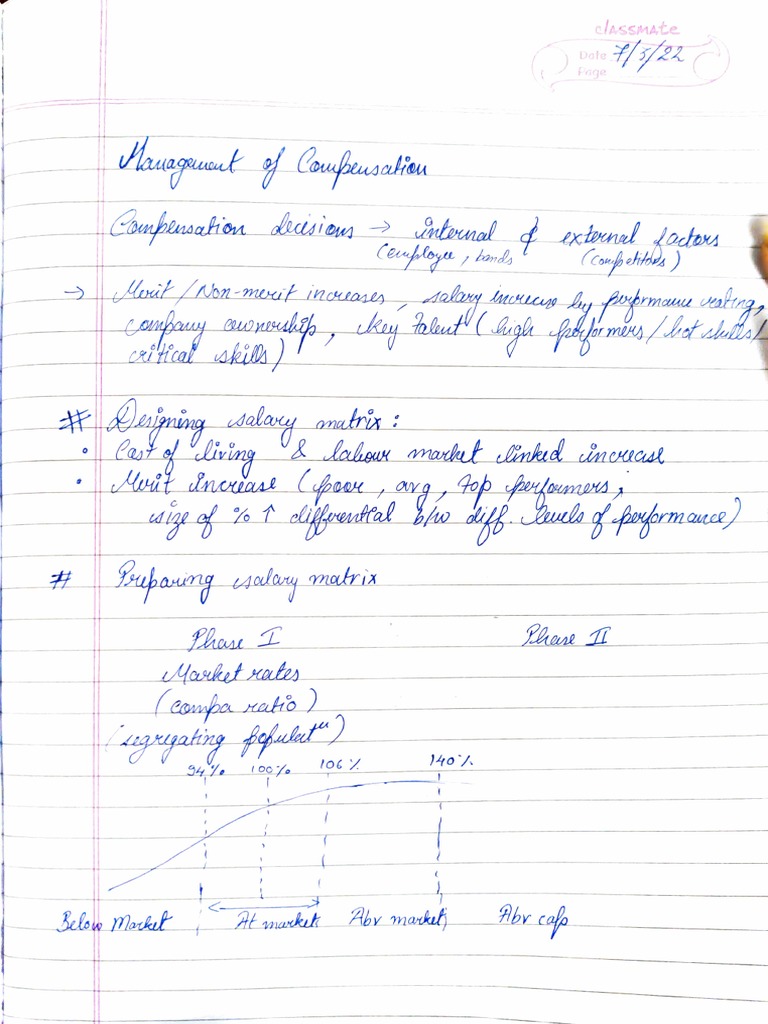 classmate
Date 7/5/22
Page
Management of Compensation
Compensation decisions → internal & external factors
(employee, bands (competitors)
→ Merit / Non-merit increases, salary increase by performance rating,
company ownership, key Talent (high performers / hot skills/
critical skills)
# Designing salary matrix:
• Cost of living & labour market linked increase
• Merit increase (poor, avg, top performers,
size of % ↑ differential b/w diff. levels of performance)
# Preparing salary matrix
Phase I Phase II
Market rates
(compa ratio)
(segregating populatn)
94% 100% 106% 140%
Below Market At market Abv market Abv cap